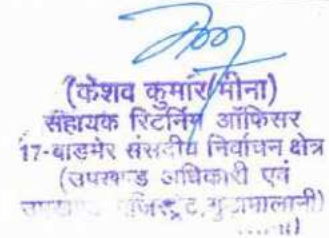 (केशव कुमार मीना)
सहायक रिटर्निंग ऑफिसर
17-बाडमेर संसदीय निर्वाचन क्षेत्र
(उपखण्ड अधिकारी एवं
गुडामालानी)